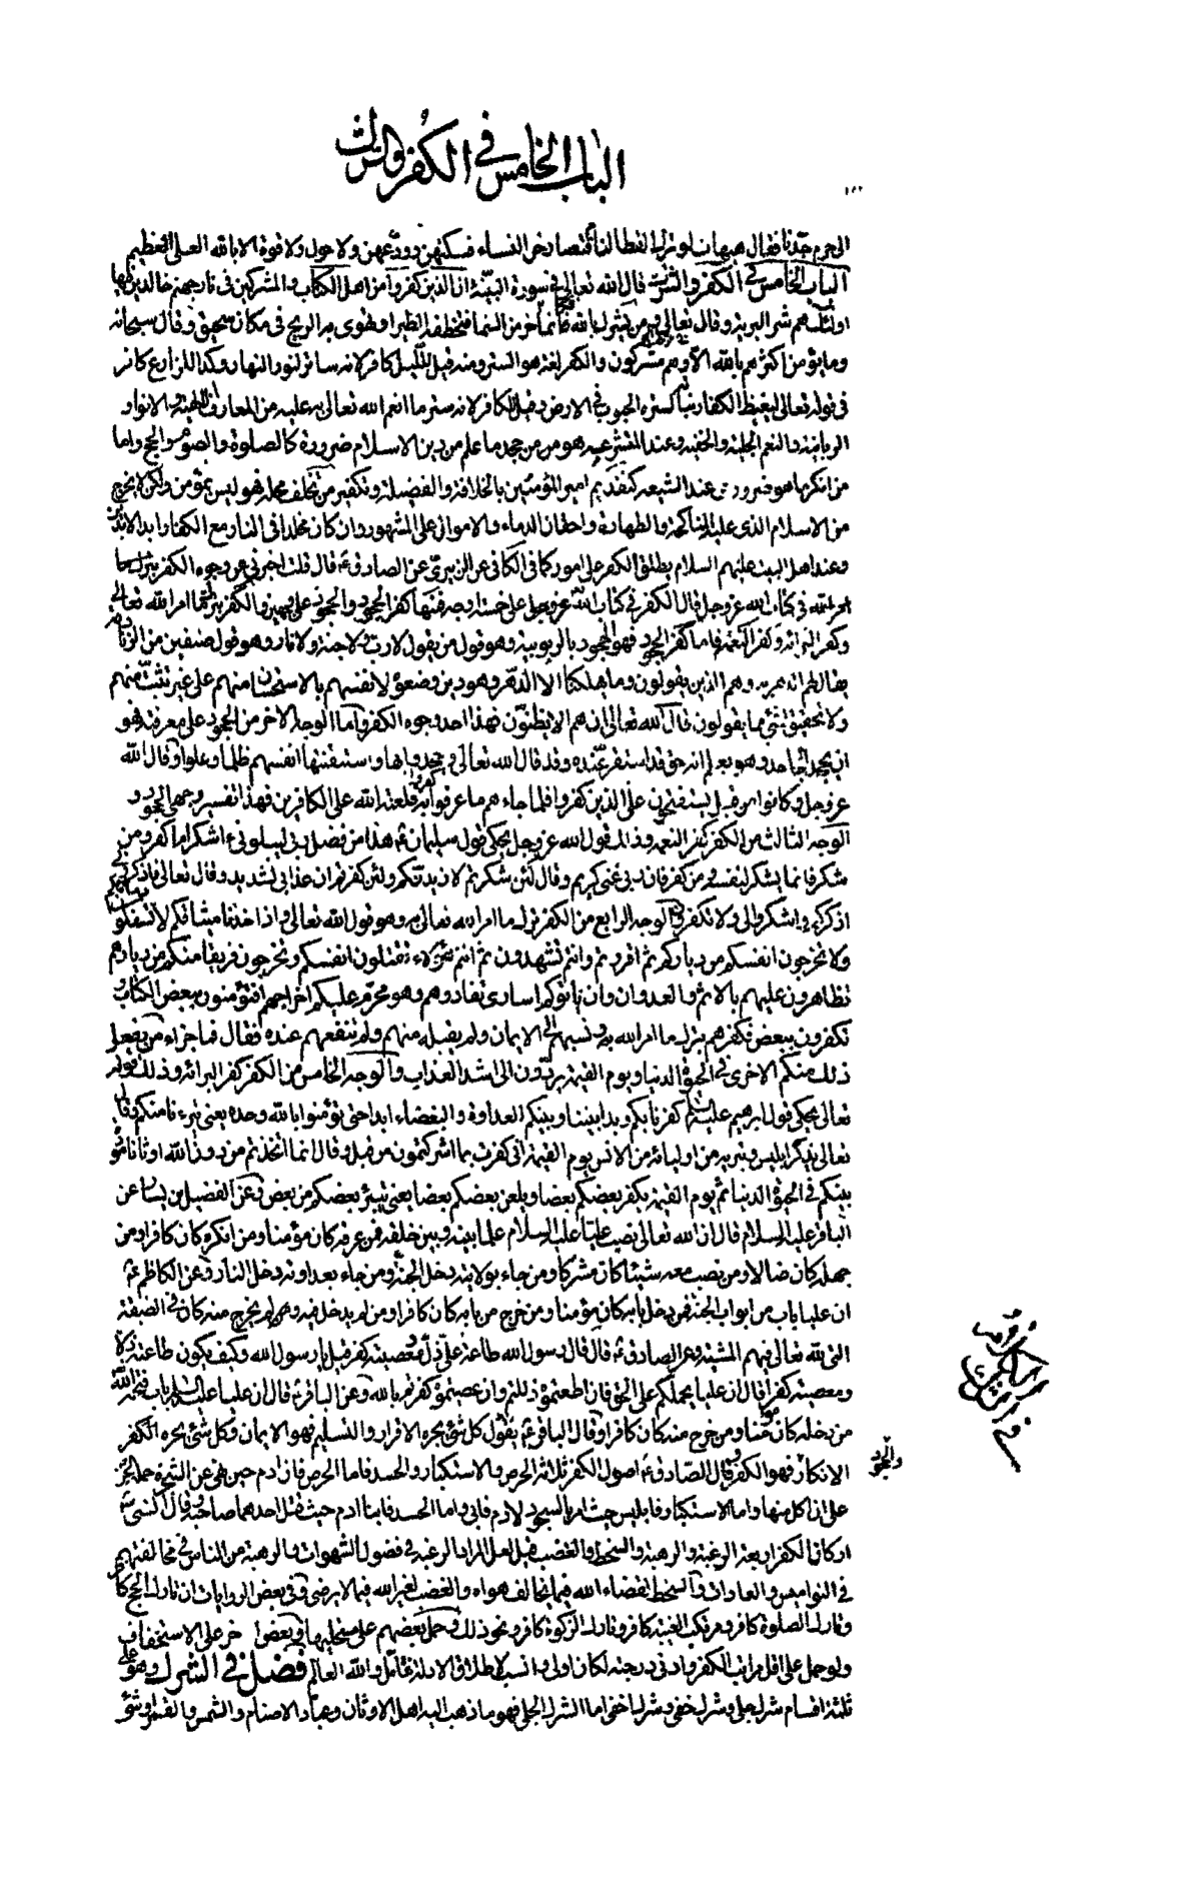 الباب الخامس في الكفر والشرك
الحرم جدنا فقال هيهات لو ترك القطا لنام فتصارخن النساء فسكتهن وودعهن ولا حول ولا قوة الا بالله العلي العظيم
الباب الخامس في الكفر والشرك قال الله تعالى في سورة البينة ان الذين كفروا من اهل الكتاب والمشركين في نار جهنم خالدين فيها
اولئك هم شر البرية وقال تعالى ومن يشرك بالله فكانما خر من السماء فتخطفه الطير او تهوى به الريح في مكان سحيق وقال سبحانه
وما يؤمن اكثرهم بالله الا وهم مشركون والكفر لغة هو الستر ومنه قيل لليل كافر لانه ساتر لنور النهار وكذا الزارع كافر
في قوله تعالى ليغيظ الكفار نباته لستره الحبوب في الارض وقيل الكافر لانه ستر ما انعم الله تعالى به عليه من المعارف الالهية والانوار
الربانية والنعم الجلية والخفية وعند المتشرعة هو من جحد ما علم من دين الاسلام ضرورة كالصلوة والصوم والحج واما
من انكر ما هو ضروري عند الشيعة كتقديم امير المؤمنين بالخلافة والفضيلة وتكفير من تخلف محله فهو ليس بمؤمن ولكن لا يخرج
من الاسلام الذى عليه المناكحة والطهارة واحتقان الدماء والاموال على المشهور وان كان مخلدا في النار مع الكفار ابد الابدين
وعند اهل البيت عليهم السلام يطلق الكفر على امور كما في الكافي عن الزبيرى عن الصادق ع قال قلت اخبرني عن وجوه الكفر
في كتاب الله عز وجل قال الكفر في كتاب الله عز وجل على خمسة اوجه فمنها كفر الجحود والجحود على وجهين والكفر بترك ما امر الله تعالى
وكفر البرائة وكفر النعمة فاما كفر الجحود فهو الجحود بالربوبية وهو قول من يقول لا رب ولا جنة ولا نار وهو قول صنفين من الزنادقة
يقال لهم الدهرية وهم الذين يقولون وما يهلكنا الا الدهر وهو دين وضعوا لانفسهم بالاستحسان منهم على غير تثبت منهم
ولا تحقيق لشئ مما يقولون قال الله تعالى ان هم الا يظنون فهذا احد وجوه الكفر واما الوجه الاخر من الجحود على معرفة فهو
ان يجحد الجاحد وهو يعلم انه حق قد استقر عنده وقد قال الله تعالى وجحدوا بها واستيقنتها انفسهم ظلما وعلوا وقال الله
عز وجل وكانوا من قبل يستفتحون على الذين كفروا فلما جاءهم ما عرفوا كفروا به فلعنة الله على الكافرين فهذا تفسير وجهى الجحود و
الوجه الثالث من الكفر كفر النعمة وذلك قول الله عز وجل يحكى قول سليمان ع هذا من فضل ربى ليبلونى ءاشكر ام اكفر ومن
شكر فانما يشكر لنفسه ومن كفر فان ربى غنى كريم وقال لئن شكرتم لازيدنكم ولئن كفرتم ان عذابي لشديد وقال تعالى فاذكروني
اذكركم واشكروا لى ولا تكفرون والوجه الرابع من الكفر ترك ما امر الله تعالى به وهو قول الله تعالى واذ اخذنا ميثاقكم لا تسفكون دماءكم
ولا تخرجون انفسكم من دياركم ثم اقررتم وانتم تشهدون ثم انتم هؤلاء تقتلون انفسكم وتخرجون فريقا منكم من ديارهم
تظاهرون عليهم بالاثم والعدوان وان ياتوكم اسارى تفادوهم وهو محرم عليكم اخراجهم افتؤمنون ببعض الكتاب و
تكفرون ببعض فكفرهم بترك ما امر الله به ونسبهم الى الايمان ولم يقبله منهم ولم ينفعهم عنده فقال فما جزاء من يفعل
ذلك منكم الا خزى في الحيوة الدنيا ويوم القيمة يردون الى اشد العذاب والوجه الخامس من الكفر كفر البرائة وذلك قوله
تعالى يحكى قول ابرهيم عليه السلام كفرنا بكم وبدا بيننا وبينكم العداوة والبغضاء ابدا حتى تؤمنوا بالله وحده يعنى تبرءنا منكم وقال
تعالى يذكر ابليس وتبريه من اوليائه من الانس يوم القيمة انى كفرت بما اشركتمون من قبل وقال انما اتخذتم من دون الله اوثانا مودة
بينكم في الحيوة الدنيا ثم يوم القيمة يكفر بعضكم ببعض ويلعن بعضكم بعضا يعنى يتبرء بعضكم من بعض وعن الفضيل بن يسار عن
الباقر عليه السلام قال ان الله تعالى نصب عليا عليه السلام علما بينه وبين خلقه فمن عرفه كان مؤمنا ومن انكره كان كافرا ومن
جهله كان ضالا ومن نصب معه شيئا كان مشركا ومن جاء بولايته دخل الجنة ومن جاء بعداوته دخل النار وعن الكاظم ع
ان عليا باب من ابواب الجنة فمن دخل بابه كان مؤمنا ومن خرج من بابه كان كافرا ومن لم يدخل فيه ولم يخرج منه كان في الطبقة
التى لله تعالى فيهم المشية وعن الصادق ع قال قال رسول الله طاعة على ذل ومعصيته كفر قيل يا رسول الله وكيف يكون طاعته ذلا
ومعصيته كفرا قال ان عليا يحملكم على الحق فان اطعتموه ذللتم وان عصيتموه كفرتم بالله وعن الباقر ع قال ان عليا عليه السلام باب فتحه الله
من دخله كان مؤمنا ومن خرج منه كان كافرا وقال الباقر ع يقول كل شئ يجره الاقرار والتسليم فهو الايمان وكل شئ يجره الكفر
والجحود
الانكار فهو الكفر وقال الصادق ع اصول الكفر ثلثة الحرص والاستكبار والحسد فاما الحرص فان ادم حين نهى عن الشجرة حمله الحرص
على ان اكل منها واما الاستكبار فابليس حيث امر بالسجود لادم فابى واما الحسد فابنا ادم حيث قتل احدهما صاحبه وقال النبي ص
اركان الكفر اربعة الرغبة والرهبة والسخط والغضب قيل لعل المراد الرغبة في فضول الشهوات والرهبة من الناس في مخالفتهم
في النواميس والعادات والسخط لقضاء الله فيما يخالف هواه والغضب لغير الله فيما لا يرضى وفى بعض الروايات ان تارك الحج كافر
وتارك الصلوة كافر ومرتكب الغيبة كافر وتارك الزكوة كافر ونحو ذلك وحمل بعضهم على مستحليها وبعض اخر على الاستخفاف
ولو حمل على اقل مراتب الكفر وادنى درجته لكان اولى وانسب لاطلاق الادلة فتامل والله العالم فصل في الشرك وهو على
ثلثة اقسام شرك جلى وشرك خفى وشرك اخفى اما الشرك الجلى فهو ما ذهب اليه اهل الاوثان وعباد الاصنام والشمس والقمر